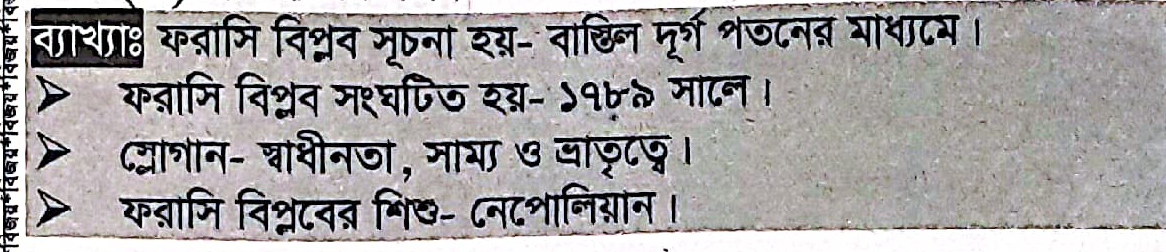 ব্যাখ্যাঃ ফরাসি বিপ্লব সূচনা হয়- বাস্তিল দূর্গ পতনের মাধ্যমে।
➤ ফরাসি বিপ্লব সংঘটিত হয়- ১৭৮৯ সালে।
➤ স্লোগান- স্বাধীনতা, সাম্য ও ভ্রাতৃত্বে।
➤ ফরাসি বিপ্লবের শিশু- নেপোলিয়ান।
*বিজয়*বিজয়*বিজয়*বিজয়*